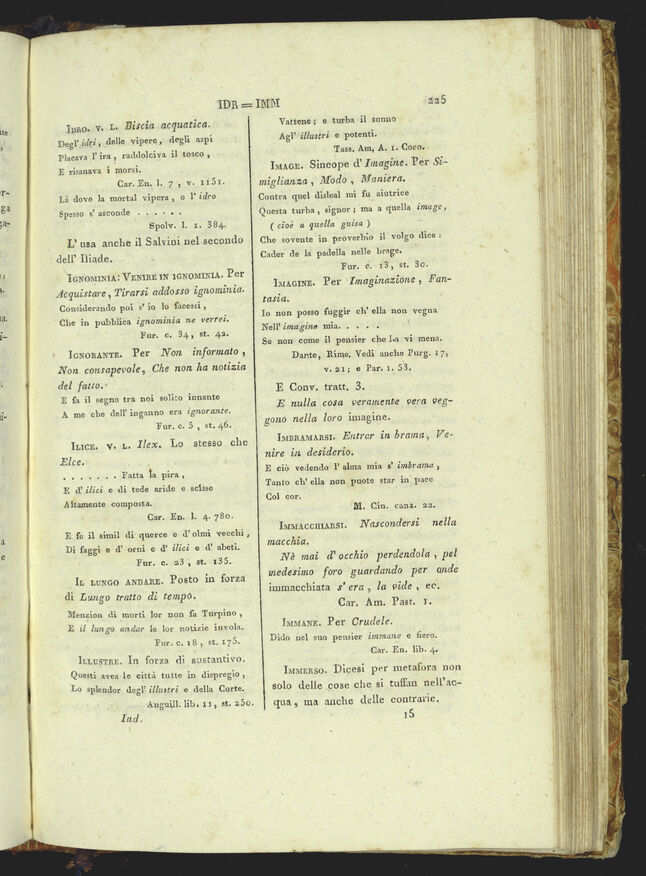 IDR = IMM
225
IDRO. V. L. Biscia acquatica.
Degl' idri, delle vipere, degli aspi
Placava l' ira, raddolciva il tosco,
E risanava i morsi.
Car. En. l. 7, v. 1151.
Là dove la mortal vipera, o l' idro
Spesso s' asconde . . . . . .
Spolv. l. 1. 384.
L' usa anche il Salvini nel secondo
dell' Iliade.
IGNOMINIA: VENIRE IN IGNOMINIA. Per
Acquistare, Tirarsi addosso ignominia.
Considerando poi s' io lo facessi,
Che in pubblica ignominia ne verrei.
Fur. c. 34, st. 42.
IGNORANTE. Per Non informato,
Non consapevole, Che non ha notizia
del fatto.
E fa il segno tra noi solito innante
A me che dell' inganno era ignorante.
Fur. c. 5, st. 46.
ILICE. V. L. Ilex. Lo stesso che
Elce.
. . . . . . . Fatta la pira,
E d' ilici e di tede aride e scisse
Altamente composta.
Car. En. l. 4. 780.
E fe il simil di querce e d' olmi vecchi,
Di faggi e d' orni e d' ilici e d' abeti.
Fur. c. 23, st. 135.
IL LUNGO ANDARE. Posto in forza
di Lungo tratto di tempo.
Menzion di morti lor non fa Turpino,
E il lungo andar le lor notizie invola.
Fur. c. 18, st. 175.
ILLUSTRE. In forza di sustantivo.
Questi avea le città tutte in dispregio,
Lo splendor degl' illustri e della Corte.
Anguill. lib. 11, st. 250.
Ind.
Vattene; e turba il sonno
Agl' illustri e potenti.
Tass. Am, A. 1. Coro.
IMAGE. Sincope d' Imagine. Per Si-
miglianza, Modo, Maniera.
Contra quel disleal mi fu aiutrice
Questa turba, signor; ma a quella image,
( cioè a quella guisa )
Che sovente in proverbio il volgo dice:
Cader de la padella nelle brage.
Fur. c. 13, st. 30.
IMAGINE. Per Imaginazione, Fan-
tasia.
Io non posso fuggir ch' ella non vegna
Nell' imagine mia. . . . .
Se non come il pensier che la vi mena.
Dante, Rime. Vedi anche Purg. 17,
v. 21; e Par. 1. 53.
E Conv. tratt. 3.
E nulla cosa veramente vera veg-
gono nella loro imagine.
IMBRAMARSI. Entrar in brama, Ve-
nire in desiderio.
E ciò vedendo l' alma mia s' imbrama,
Tanto ch' ella non puote star in pace
Col cor.
M. Cin. canz. 22.
IMMACCHIARSI. Nascondersi nella
macchia.
Nè mai d' occhio perdendola, pel
medesimo foro guardando per onde
immacchiata s' era, la vide, ec.
Car. Am. Past. 1.
IMMANE. Per Crudele.
Dido nel suo pensier immane e fiero.
Car. En. lib. 4.
IMMERSO. Dicesi per metafora non
solo delle cose che si tuffan nell'ac-
qua, ma anche delle contrarie.
15